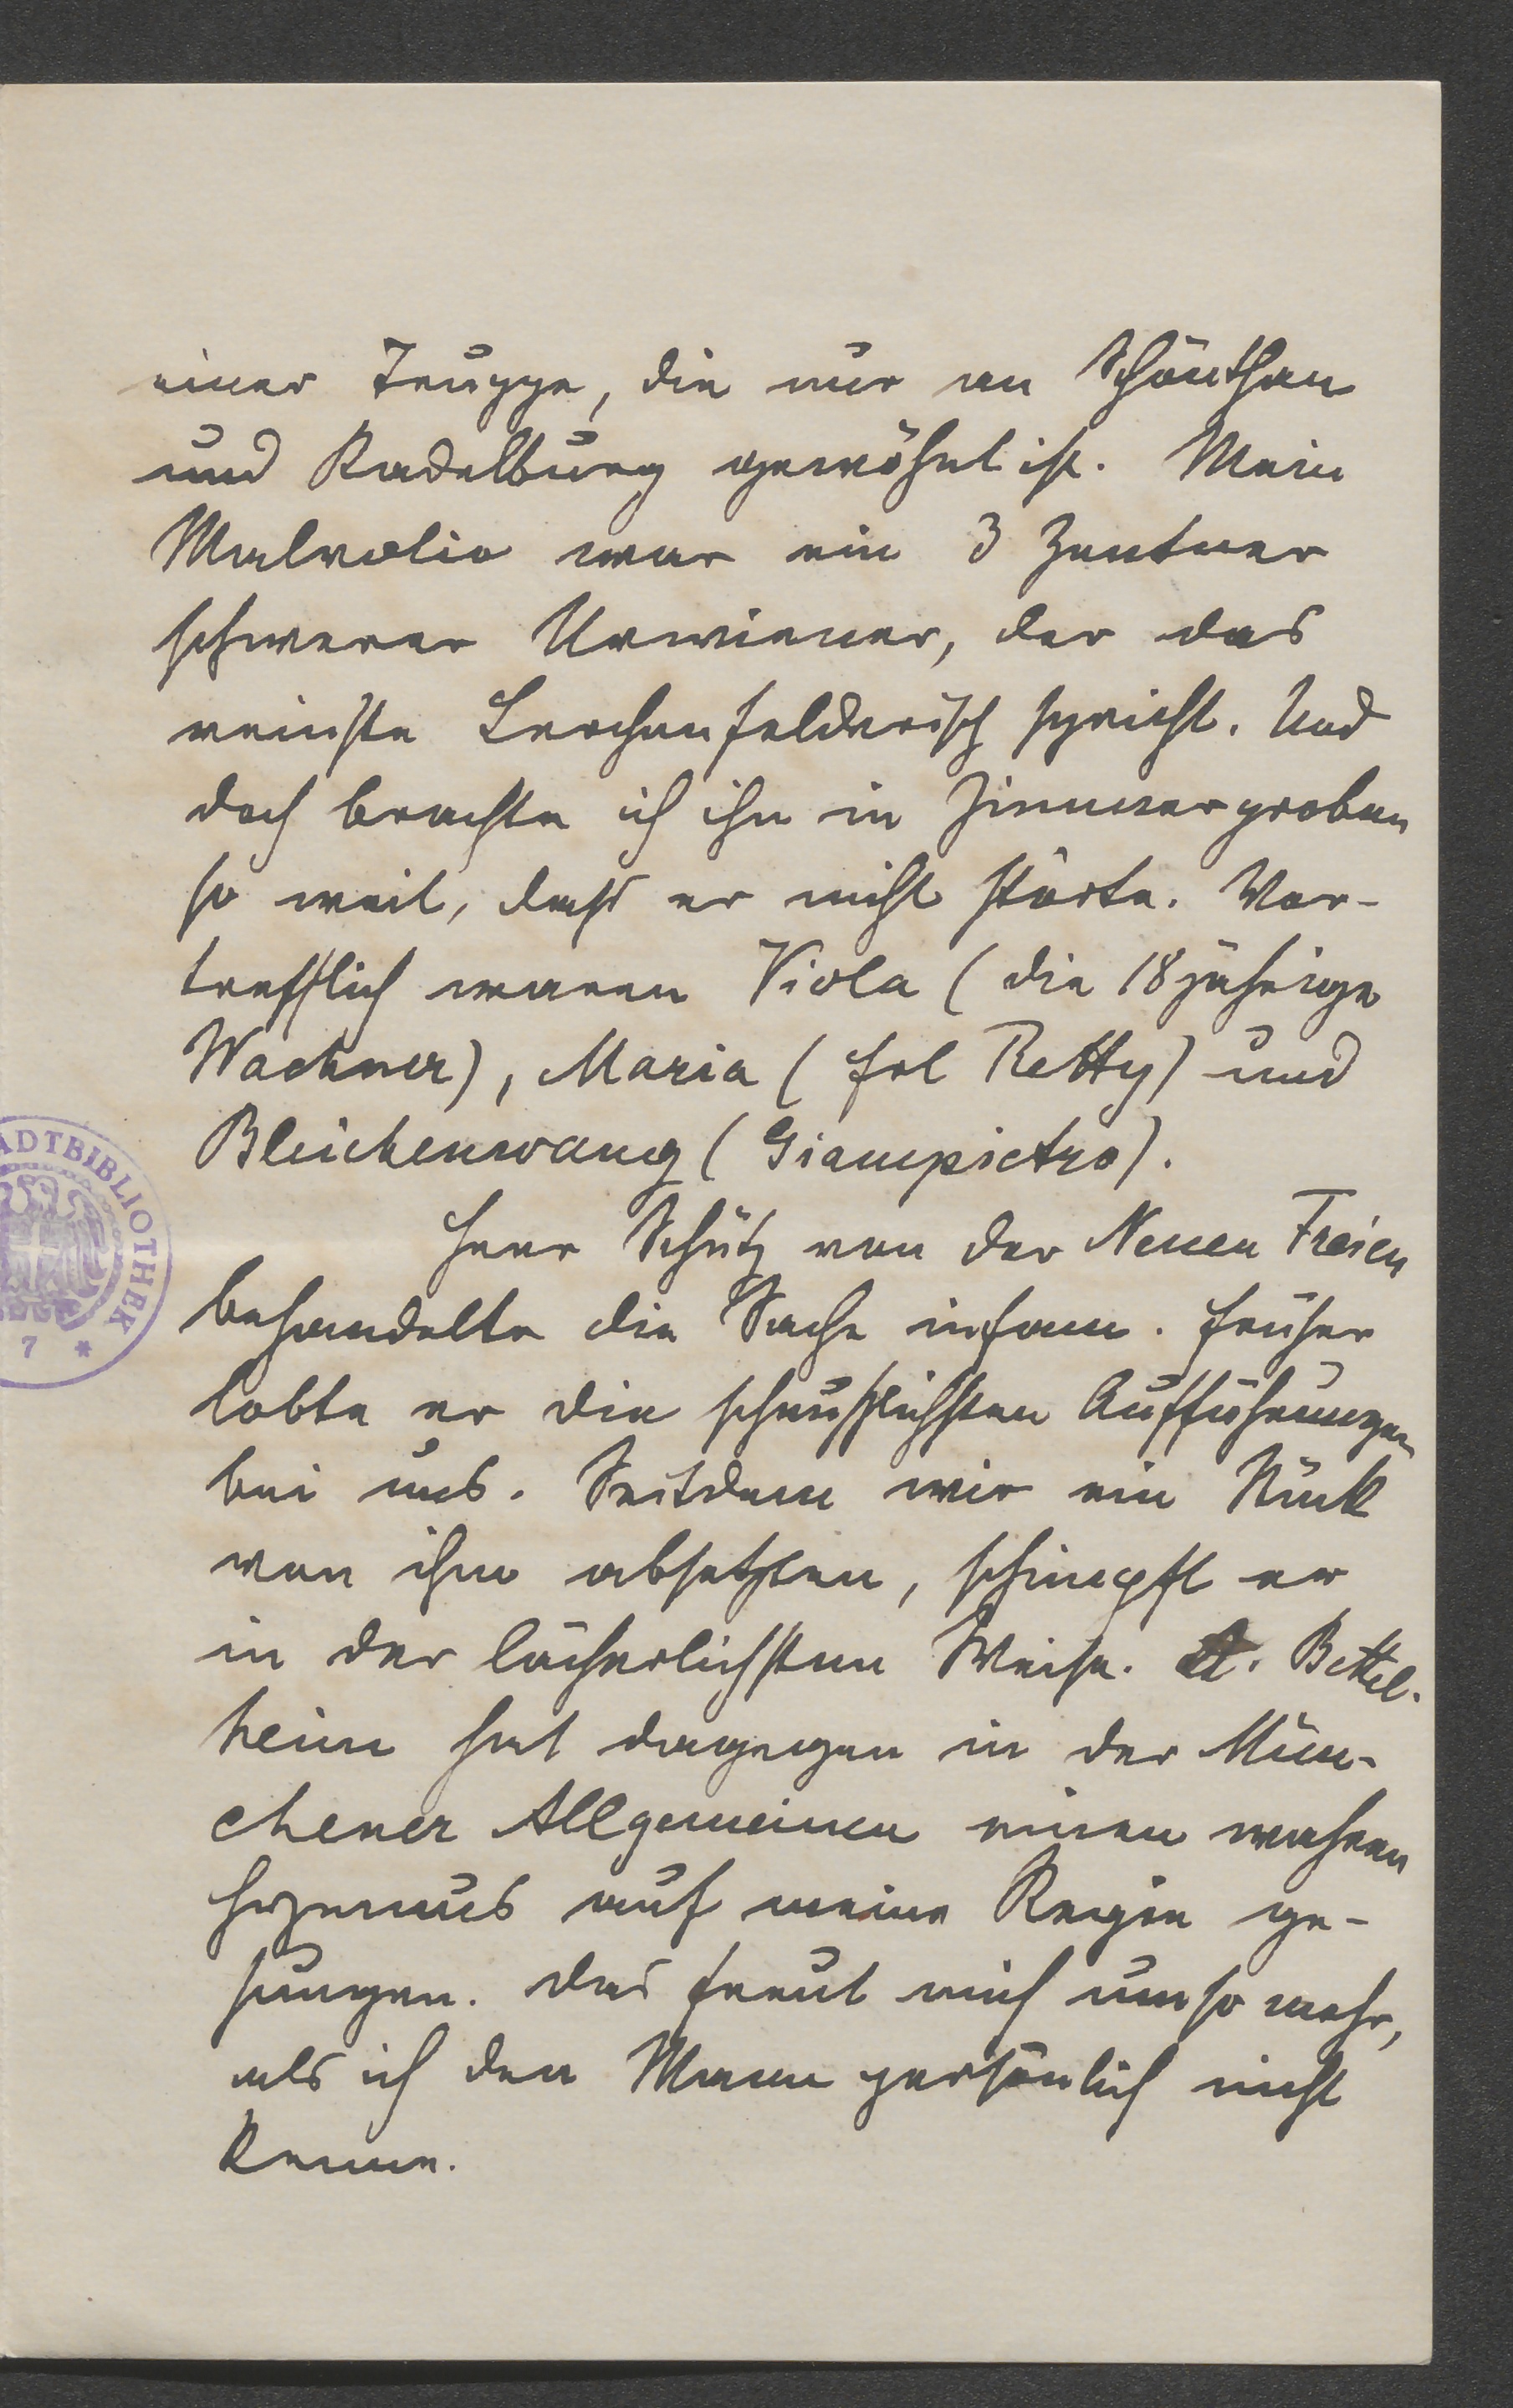 einer Truppe, die nur an Schönthan
und Kadelburg gewöhnt ist. Mein
Malvolio war ein 3 Zentner
schwerer Urwiener, der das
reinste Lerchenfelderisch spricht. Und
doch brachte ich ihn in Zimmerproben
so weit, dass er nicht störte. Vor-
trefflich waren Viola (die 18jährige
Wachner), Maria (Frl Retty) und
Bleichenwang (Giampietro).
Herr Schütz von der Neuen Freien
behandelte die Sache infam. Früher
lobte er die scheußlichsten Aufführungen
bei uns. Seitdem wir ein Stück
von ihm absetzten, schimpft er
in der lächerlichsten Weise. A. Bettel-
heim hat dagegen in der Mün-
chener Allgemeinen einen wahren
Hymnus auf meine Regie ge-
sungen. Das freut mich umso mehr,
als ich den Mann persönlich nicht
kenne.
ADTBIBLIOTHEK
7 *